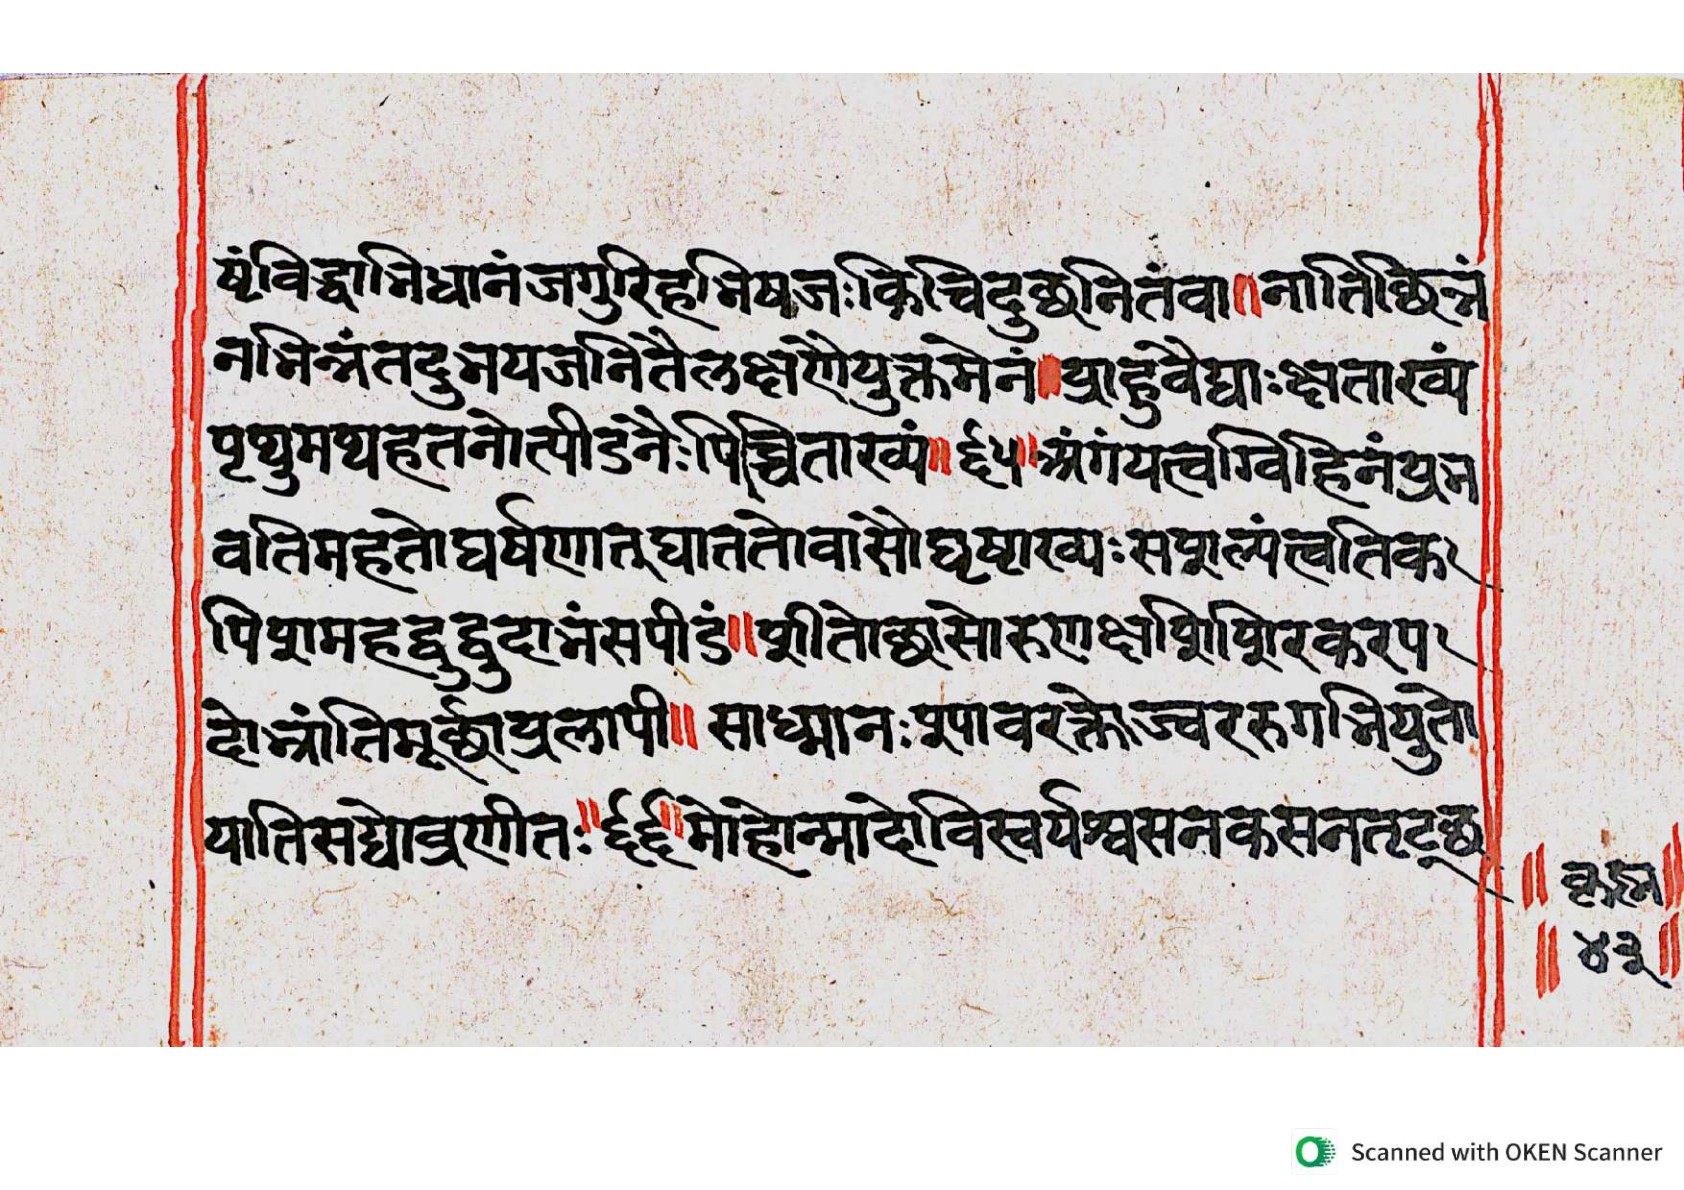 षंविद्धाभिधानंजगुरिहभिषजःकिंचिदुछूनितंवा॥नातिछिन्नं
नभिन्नंतदुभयजनितैलक्षणैयुक्तमेनं॥प्राहुवैद्याःक्षताख्यं
पृथुमथहतनोत्पीडनैःपिच्चिताख्यं॥६५॥अंगंयत्वग्विहिनंप्रभ
वतिमहतोघर्षणात्घाततोवांसौघृष्टाख्यःसशूल्यंत्वतिक
पिशमहद्बुद्बुदाभंसपीडं॥शीतोछासोरुणक्षाशिशिरकरप
दोभ्रांतिमूर्छाप्रलापी॥साध्मानःशूपावरक्तोज्वररुगभियुतो
यातिसद्योव्रणीतः॥६६॥मोहोन्मादोविस्वर्यश्वसनकसनतृट्छ
॥४३॥
Scanned with OKEN Scanner